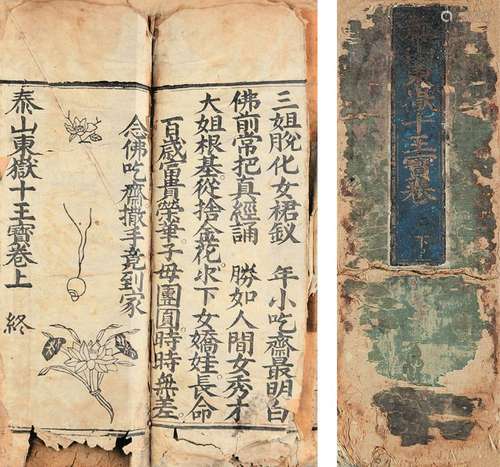 三姐脫化女裙釵　年小吃齋最明白
佛前常把真經誦　勝如人間女秀才
大姐根基從捨金花　水下女嬌娃長命
百歲富貴榮華子母團圓時時無差
念佛吃齋撒手竟到家
泰山東嶽十王寶卷上　終
東嶽十王寶卷　下